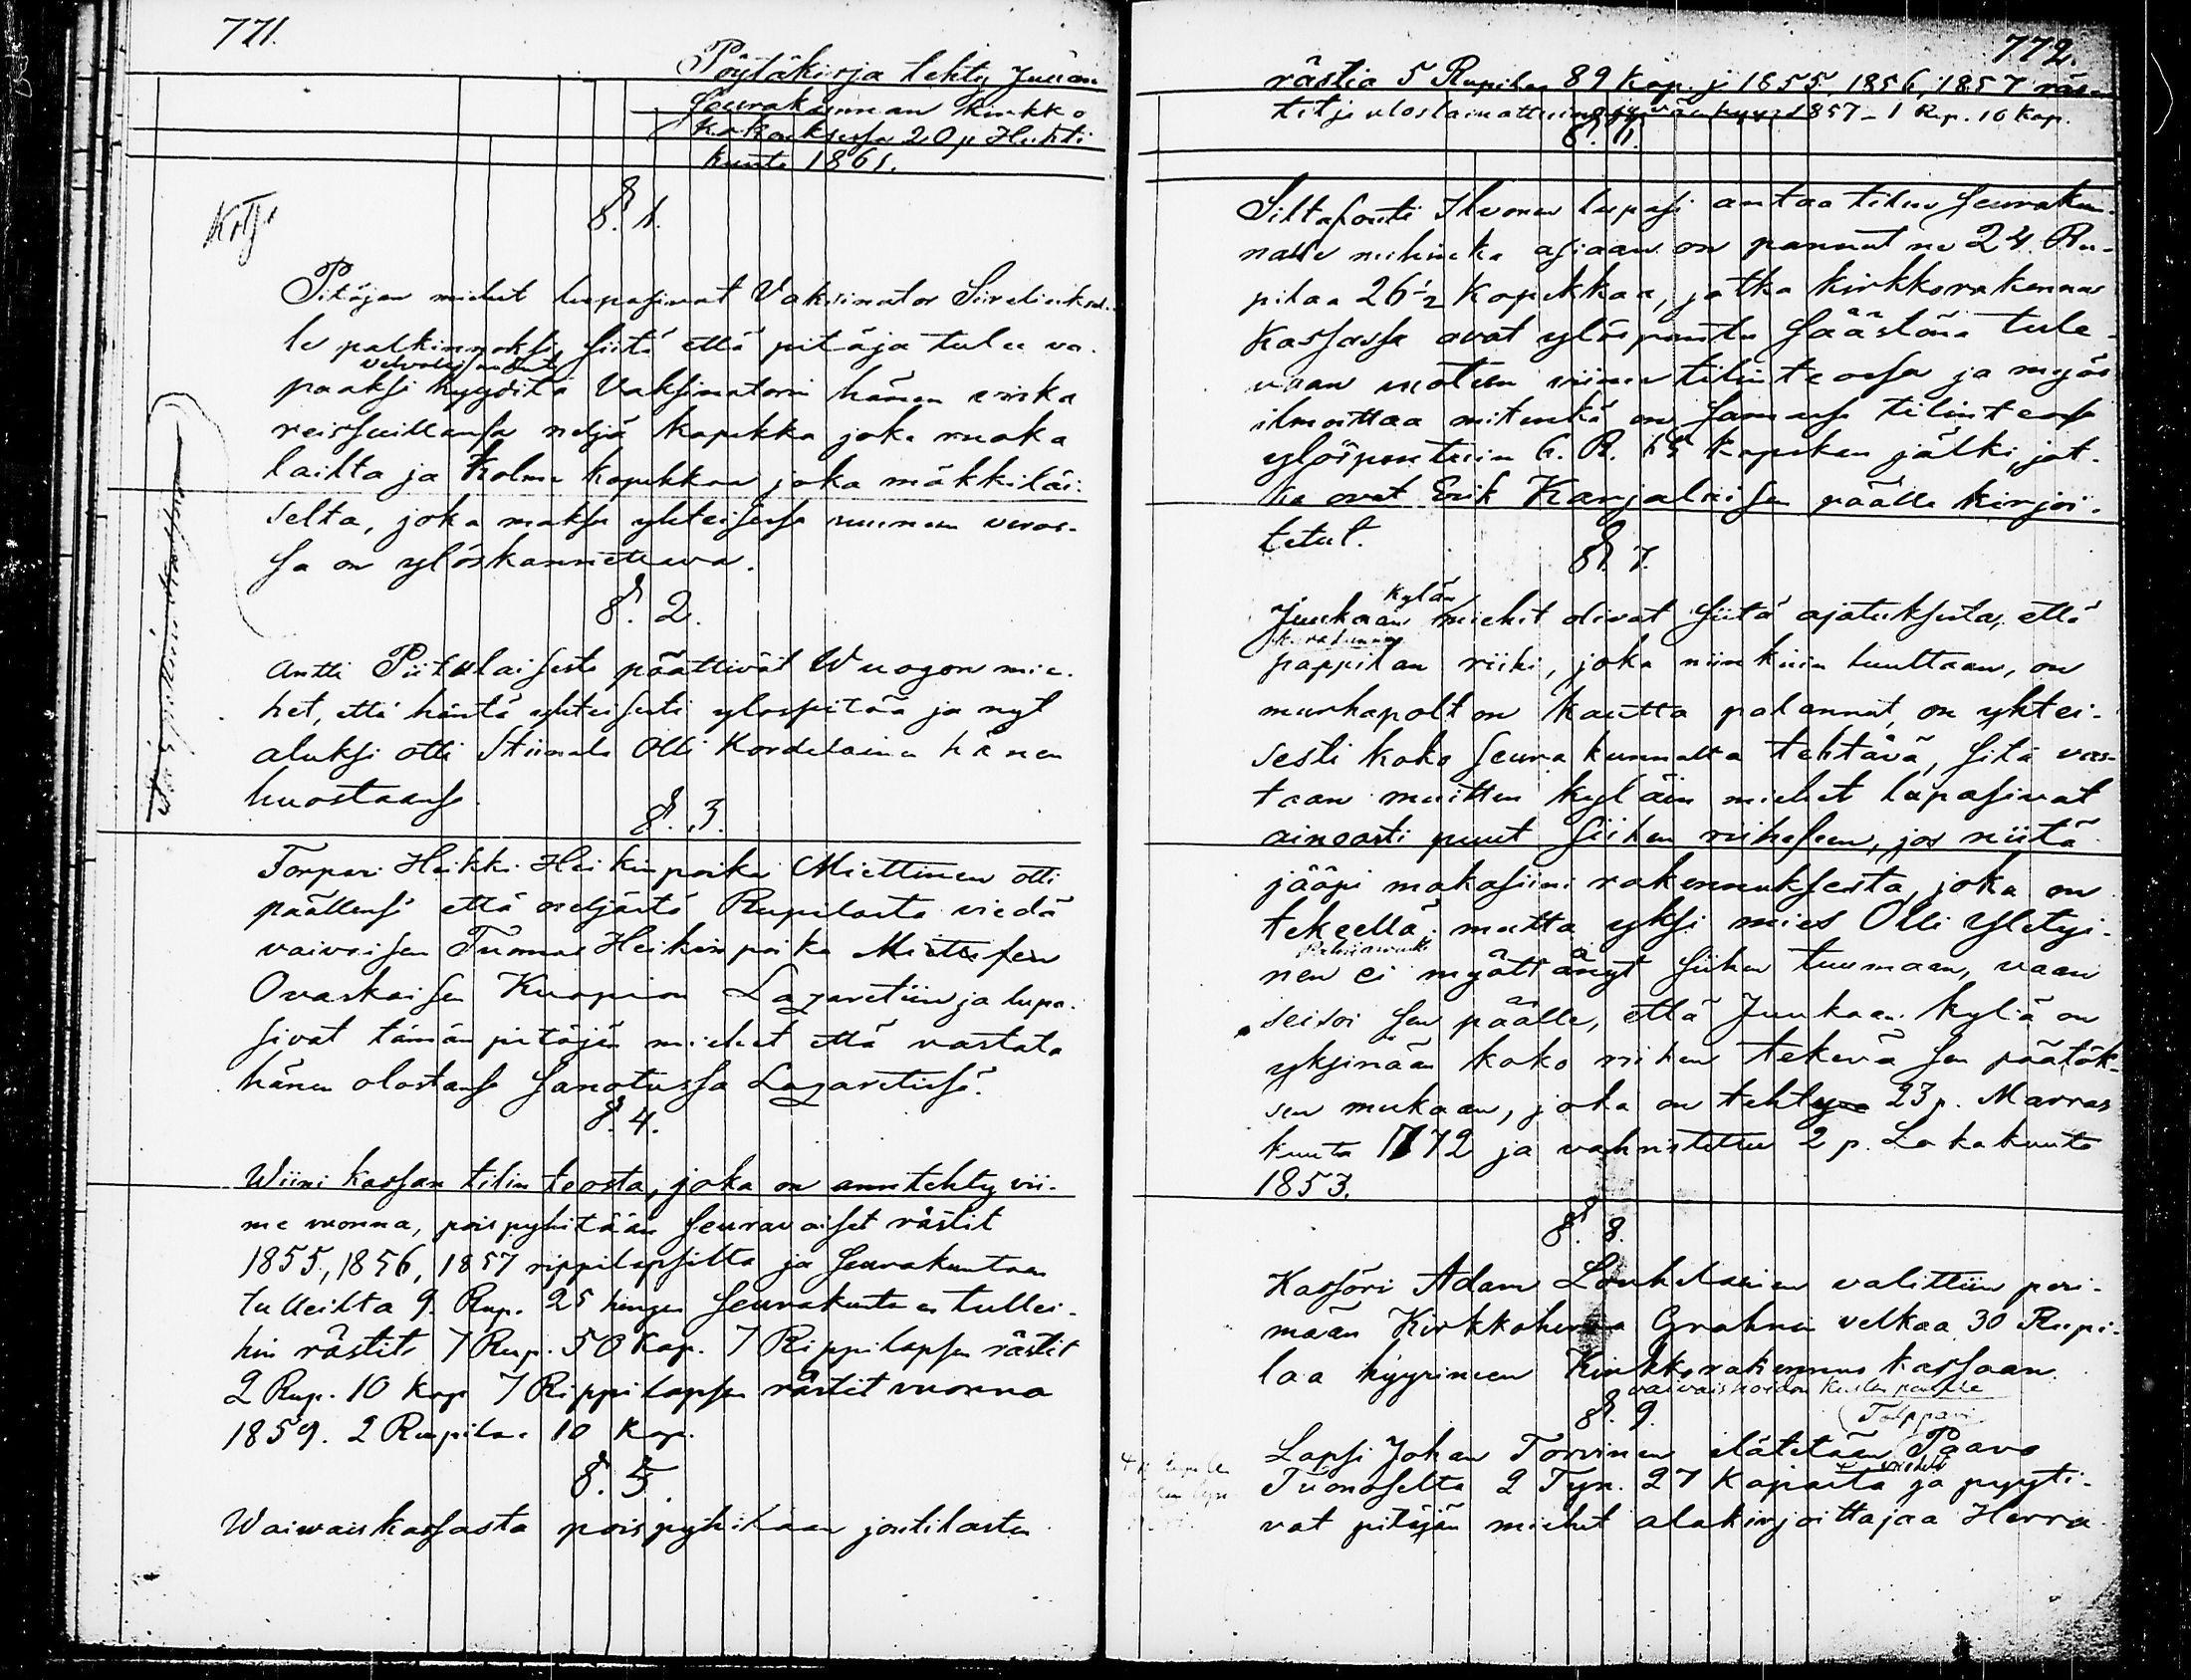 771.
Pöytäkirja tehty Juuan
Seurakunnan kirkko
kokouksessa 20 p Huhti
kuuta 1861.
§. 1.
Pitäjän miehet lupasivat Vaksinator Sireliuksel-
le palkinnoksi siitä että pitäjä tulee va-
paaksi kyyditä Vaksinatorin hänen virka
reissuillansa neljä kopekka joka ruoka
laihta ja kolme kopekkaa joka mäkkiläi-
selta, joka maksu yhteisessä ruunun veros-
sa on ylöskannettava.
§. 2.
Antti Piitulaisesta päättivät Wuogon mie-
het, että häntä yhteisesti ylöspitää ja nyt
aluksi otti Olli Kordelainen hänen
huostaansa.
§. 3.
Torpari Heikki Heikinpoika Miettinen otti
päällensä että neljästä Rupilasta viedä
vaivaisen Tuomas Heikinpoika Miettisen
Ovaskaisen Kuopion Lazaretiin ja lupa-
sivat tämän pitäjän miehet että vastata
hänen olostansa sanotussa Lazaretissa.
§. 4.
Wiini kassan tilin teosta, joka on tehty vii-
me vuonna, poispyhitään seuravaiset rästit
1855, 1856, 1857 rippilapsilta ja seurakuntaan
tulleilta 9. Rup. 25 hengen seurakuntaan tullei-
hin rästit 7 Rup. 50 Kop. 7 Rippilapsen rästit
2 Rup. 10 Kop 7 Rippilapsen rästit vuonna
1859. 2 Rupilaa 10 Kop.
§. 5.
Waiwaiskassasta poispyhitään
772.
rästia 5 Rupilaa 89 Kop. j 1855, 1856, 1857 räs-
tit ja uloslainattuin 1857 - 1 Rup. 10 Kop.
§. 6.
Siltafouti Ikonen lupasi antaa tilin seurakun-
nalle mihinkä asiaan on pannut ne 24 Ru-
pilaa 26 1/2 Kopekkaa, jotka kirkkorakennus
kassassa ovat ylöspantu säästönä tule-
vaan vuoteen viime tilinteossa ja myös
ilmoittaa mitenkä on samassa tilinteossa
ylöspantuin 6. R. 65 kopekan jälki, jot-
ka ovat Erik Karjalaisen päälle kirjoi-
tetut.
§. 7.
kylän
Juukaan miehet olivat siitä ajatuksesta, että
pappilan riihi, joka niinkuin luultaan, on
murhapolton kautta palannut, on yhtei-
sesti koko seurakunnalta tehtävä, sitä vas-
taan muitten kyläin miehet lupasivat
ainoasti puut siihen riiheseen, jos niitä
jääpi makasiini rakennuksesta, joka on
tekeellä; mutta yksi mies Olli Yletyi-
nen ei myöttänyt siihen tuumaan, vaan
seisoi sen päälle, että Juukaan kylä on
yksinään koko riihen tekevä sen päätök-
sen mukaan, joka on tehty 23 p. Marras
kuuta 1772 ja vahvistettu 2 p. Lokakuuta
1853.
§. 8.
Kassöri Adam Louhelainen valittiin peri-
mään Kirkkoherra Grahnin velkaa 30 Rupi-
laa hyyrineen Kirkkorakennus kassaan.
§. 9.
Lapsi Johan Torvinen elätetään Paavo
Tuonoselta 2 Tyn. 27 Kapasta ja pyyti-
vat pitäjän miehet alakirjoittajaa Herra